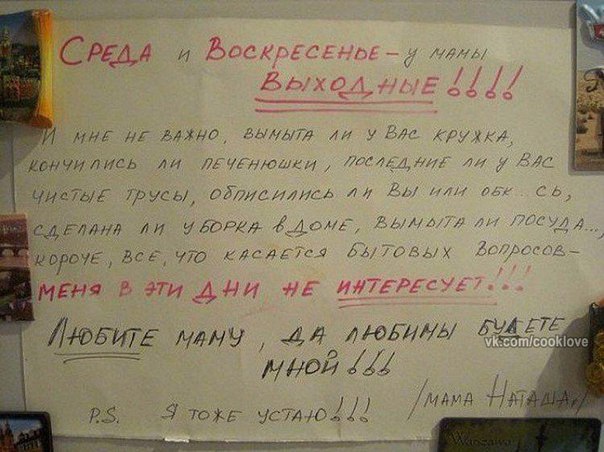 СРЕДА и ВОСКРЕСЕНЬЕ – у МАМЫ
ВЫХОДНЫЕ!!!!
И МНЕ НЕ ВАЖНО, ВЫМЫТА ЛИ У ВАС КРУЖКА,
КОНЧИЛИСЬ ЛИ ПЕЧЕНЮШКИ, ПОСЛЕДНИЕ ЛИ У ВАС
ЧИСТЫЕ ТРУСЫ, ОПИСИЛИСЬ ЛИ ВЫ ИЛИ ОБК...СЬ,
СДЕЛАНА ЛИ УБОРКА в ДОМЕ, ВЫМЫТА ЛИ ПОСУДА...,
КОРОЧЕ, ВСЕ, ЧТО КАСАЕТСЯ БЫТОВЫХ ВОПРОСОВ –
МЕНЯ В ЭТИ ДНИ НЕ ИНТЕРЕСУЕТ!!!
ЛЮБИТЕ МАМУ, ДА ЛЮБИМЫ БУДЕТЕ
vk.com/cooklove
МНОЙ!!!
/МАМА НАТАША/
P.S. Я ТОЖЕ УСТАЮ!!!
Warszawa